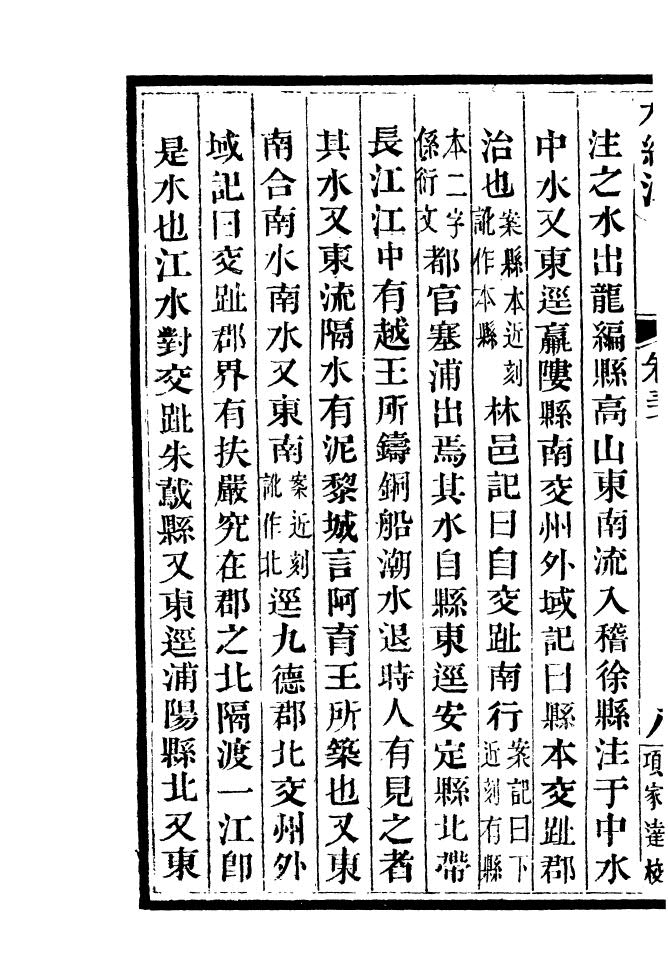 注之水出龍編縣高山東南流入稽徐縣注于中水
中水又東逕羸𨻻縣南交州外域記曰縣本交趾郡
治也案縣本近刻訛作本縣林邑記曰自交趾南行案記曰下近刻有縣
本二字係衍文都官塞浦出焉其水自縣東逕安定縣北帶
長江江中有越王所鑄銅船潮水退時人有見之者
其水又東流隔水有泥黎城言阿育王所築也又東
南合南水南水又東南案近刻訛作北逕九德郡北交州外
域記曰交趾郡界有扶嚴究在郡之北隔渡一江卽
是水也江水對交趾朱䳒縣又東逕浦陽縣北又東
項家達校